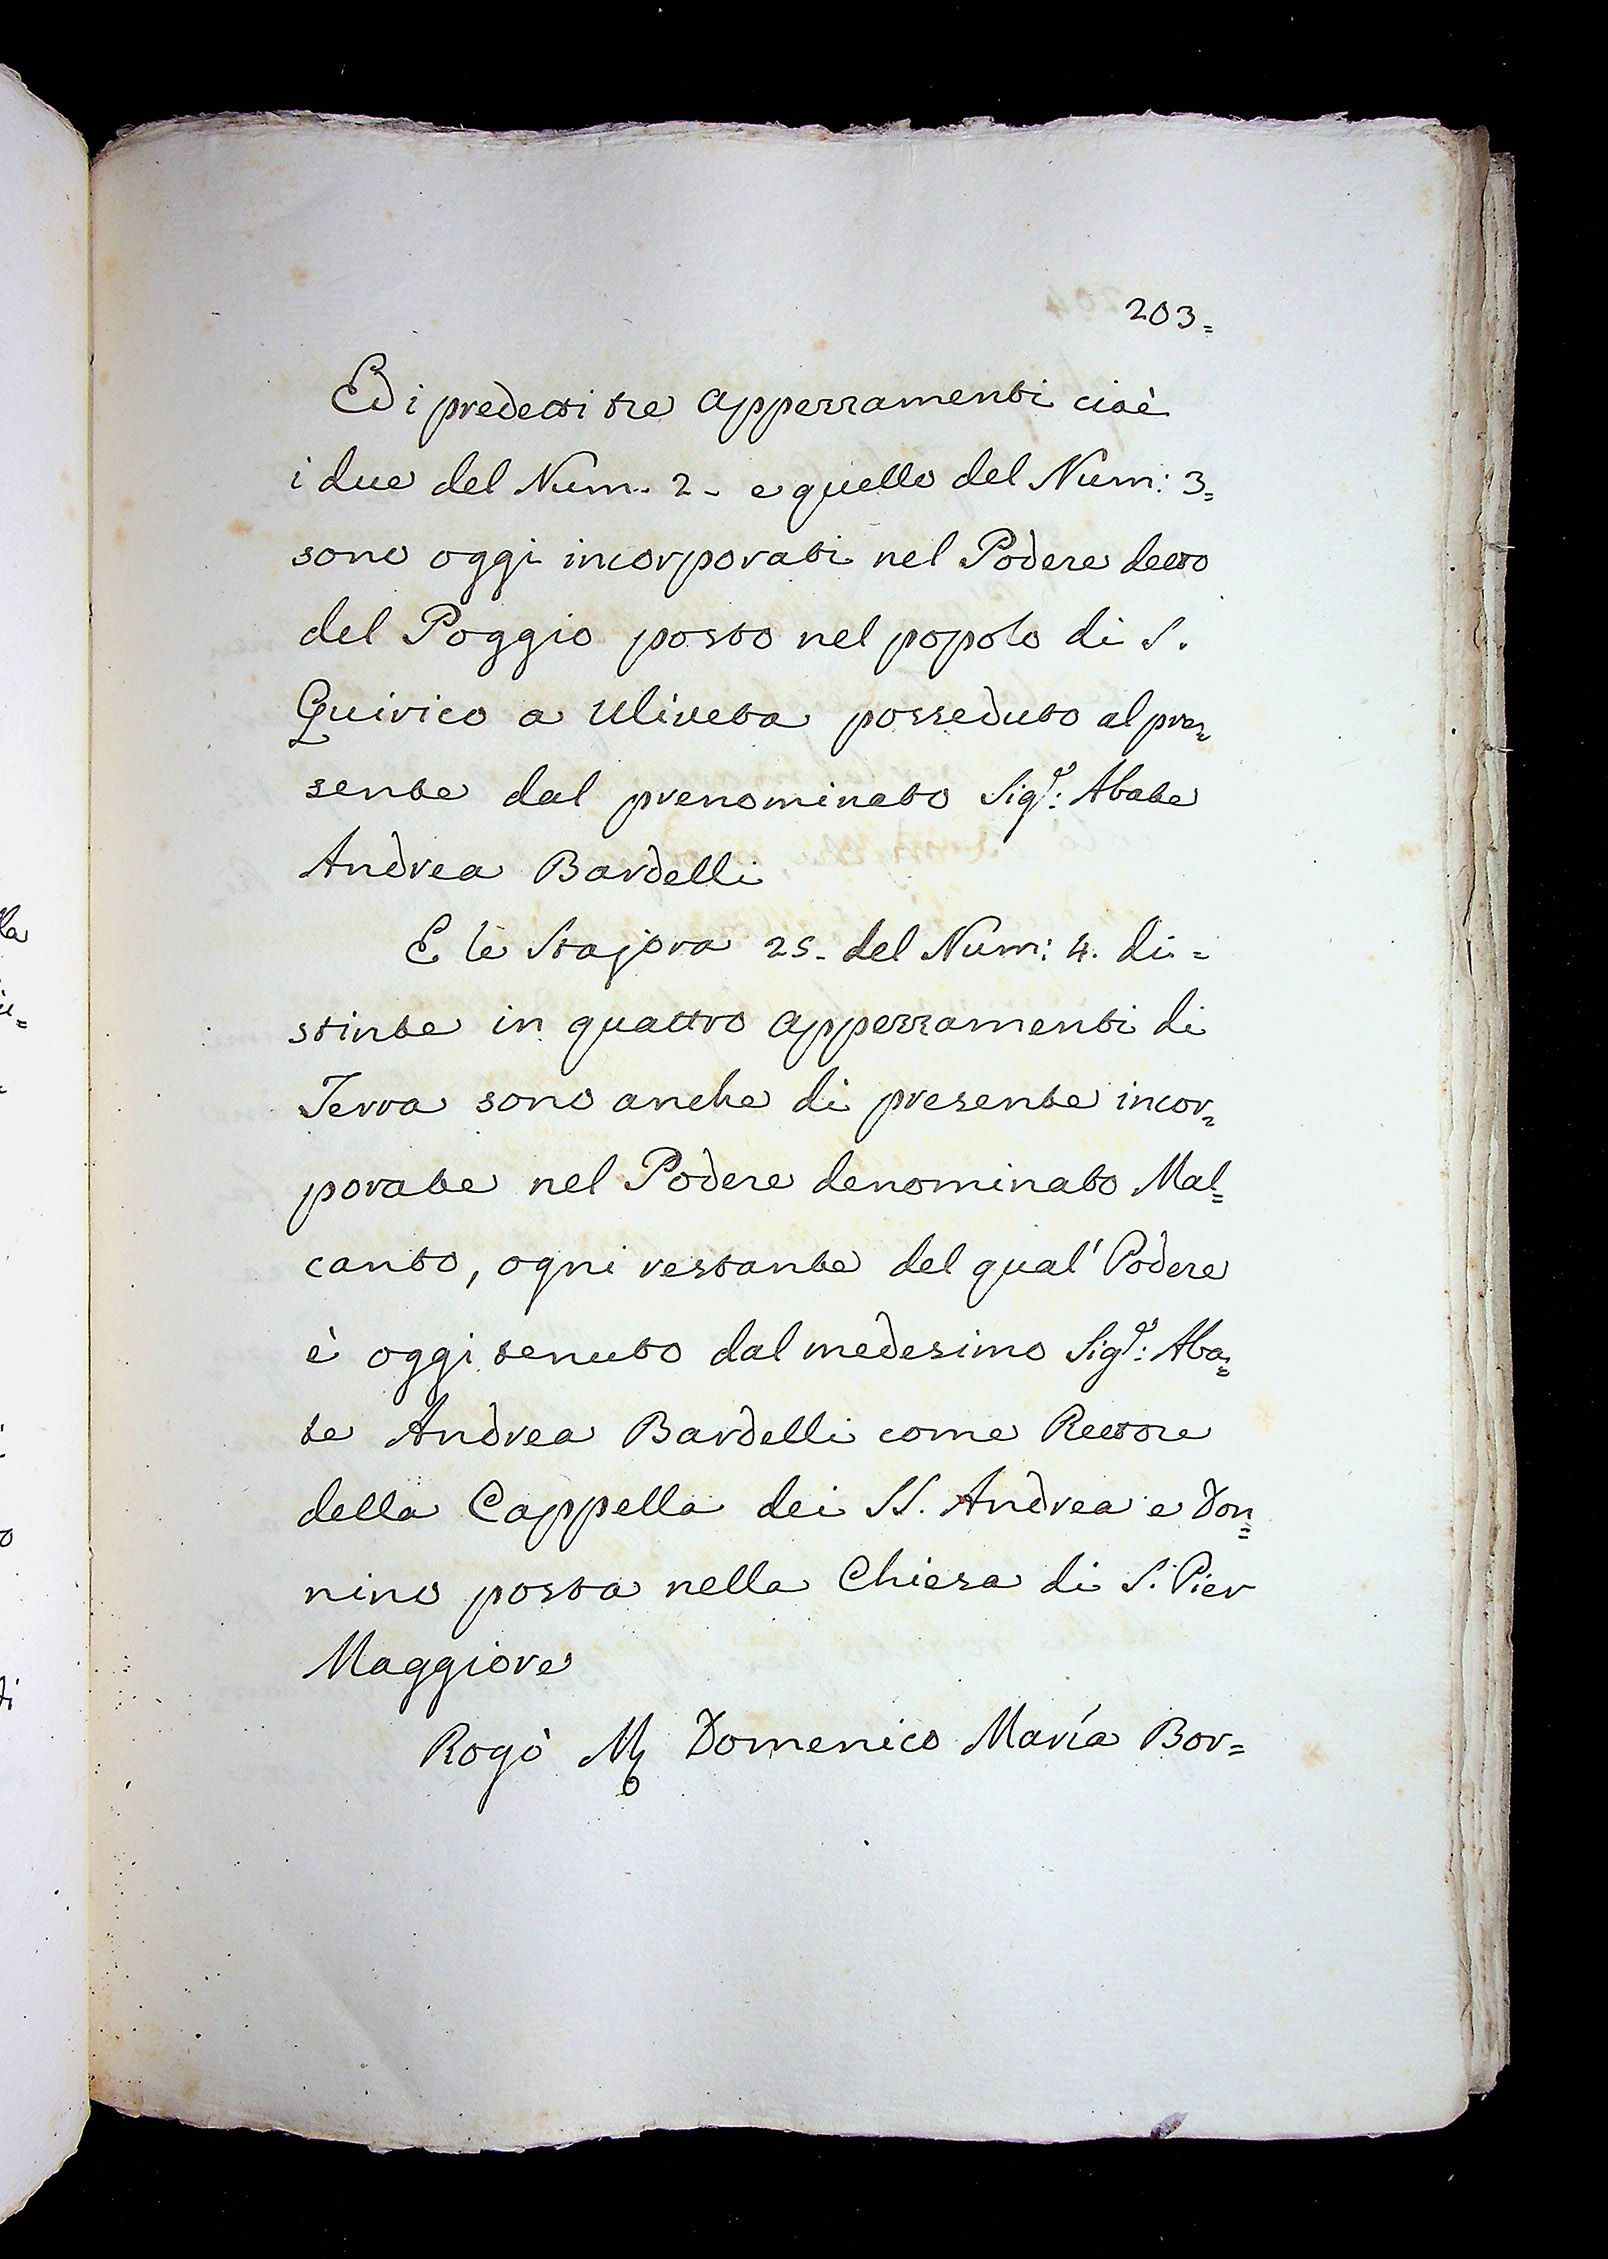 203=
Ed i predetti tre Appezzamenti cioè
i due del Num. 2- e quello del Num: 3=
sono oggi incorporati nel Podere detto
del Poggio posto nel popolo di S.
Quirico a Uliveta posseduto al pre=
sente dal prenominato Sigr: Abate
Andrea Bardelli
E le Stajora 25- del Num: 4. di=
stinte in quattro Appezzamenti di
Terra sono anche di presente incor=
porate nel Podere denominato Mal=
canto, ogni restante del qual' Podere
è oggi tenuto dal medesimo Sigr: Aba=
te Andrea Bardelli come Rettore
della Cappella dei SS. Andrea e Don=
nino posta nella Chiesa di S. Pier
Maggiore
Rogò Mo Domenico María Bor=